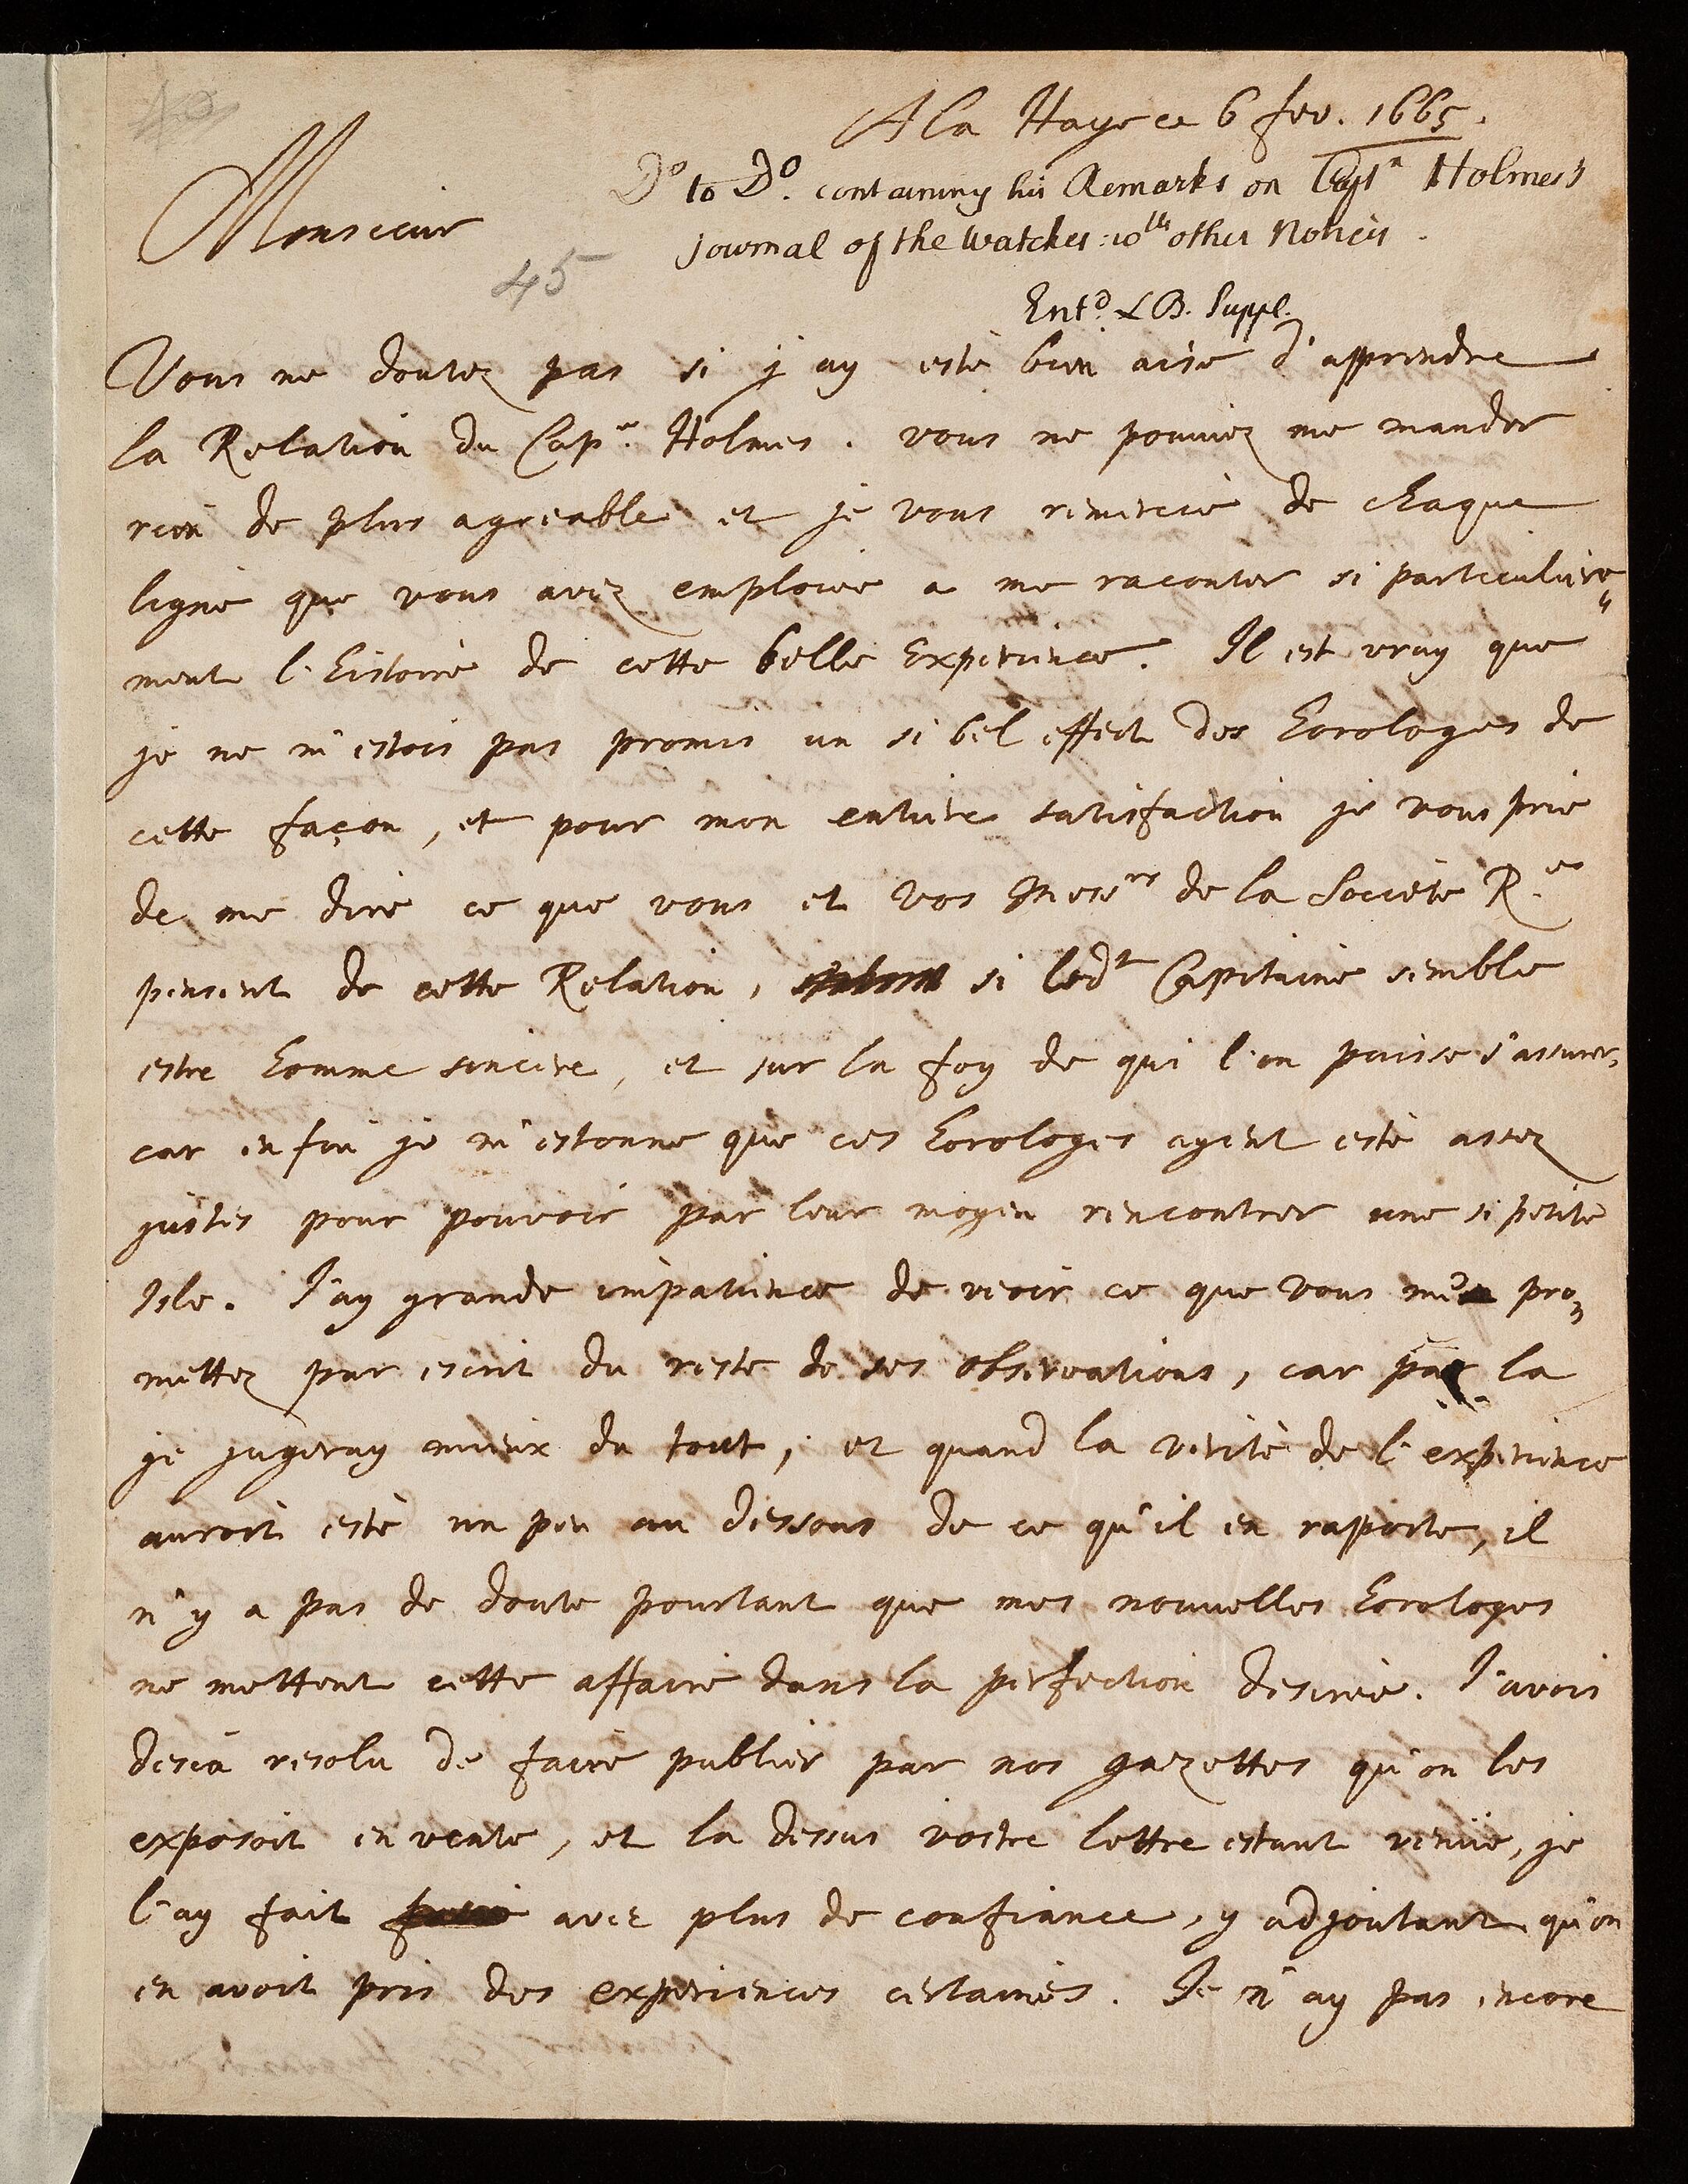 A la Haye ce 6 fev. 1665.
Do to Do. containing his Remarks on Captn Holmes's
Journal of the Watches: wth other Notices.
Monsieur
45
Entd. LB. Suppl.
Vous ne doutez pas si j'ay esté bien aise d'apprendre
la Relation du Capne. Holmes. vous ne pouviez me mander
rien de plus agreable et je vous remercie de chaque
ligne que vous avez emploiee a me raconter si particuliere„
ment l'histoire de cette belle Experience. Il est vray que
je ne m'estois pas promis un si bel effect des horologes de
cette façon, et pour mon entiere satisfaction je vous prie
de me dire ce que vous et vos Messrs de la Societè R.le
pensent de cette Relation, si ledt Capitaine semble
estre homme sincere, et sur la foy de qui l'on puisse s'assurer,
car enfin je m'estonne que ces horologes ayent esté assez
justes pour pouvoir par leur moyen rencontrer une si petite
Isle. J'ay grande impatience de veoir ce que vous me pro„
mettez par escrit du reste de ses observations, car par la
je jugeray mieux du tout, et quand la veritè de l'experience
auroit esté un peu au dessous de ce qu'il en raporte, il
n'y a pas de doute pourtant que mes nouvelles horologes
ne mettent cette affaire dans la perfection desirée. J'avois
desia resolu de faire publier par nos gazettes qu'on les
exposoit en vente, et la dessus vostre lettre estant venüe, je
l'ay fait avec plus de confiance, y adjoutant qu'on
en avoit pris des experiences certaines. Je n'ay pas encore